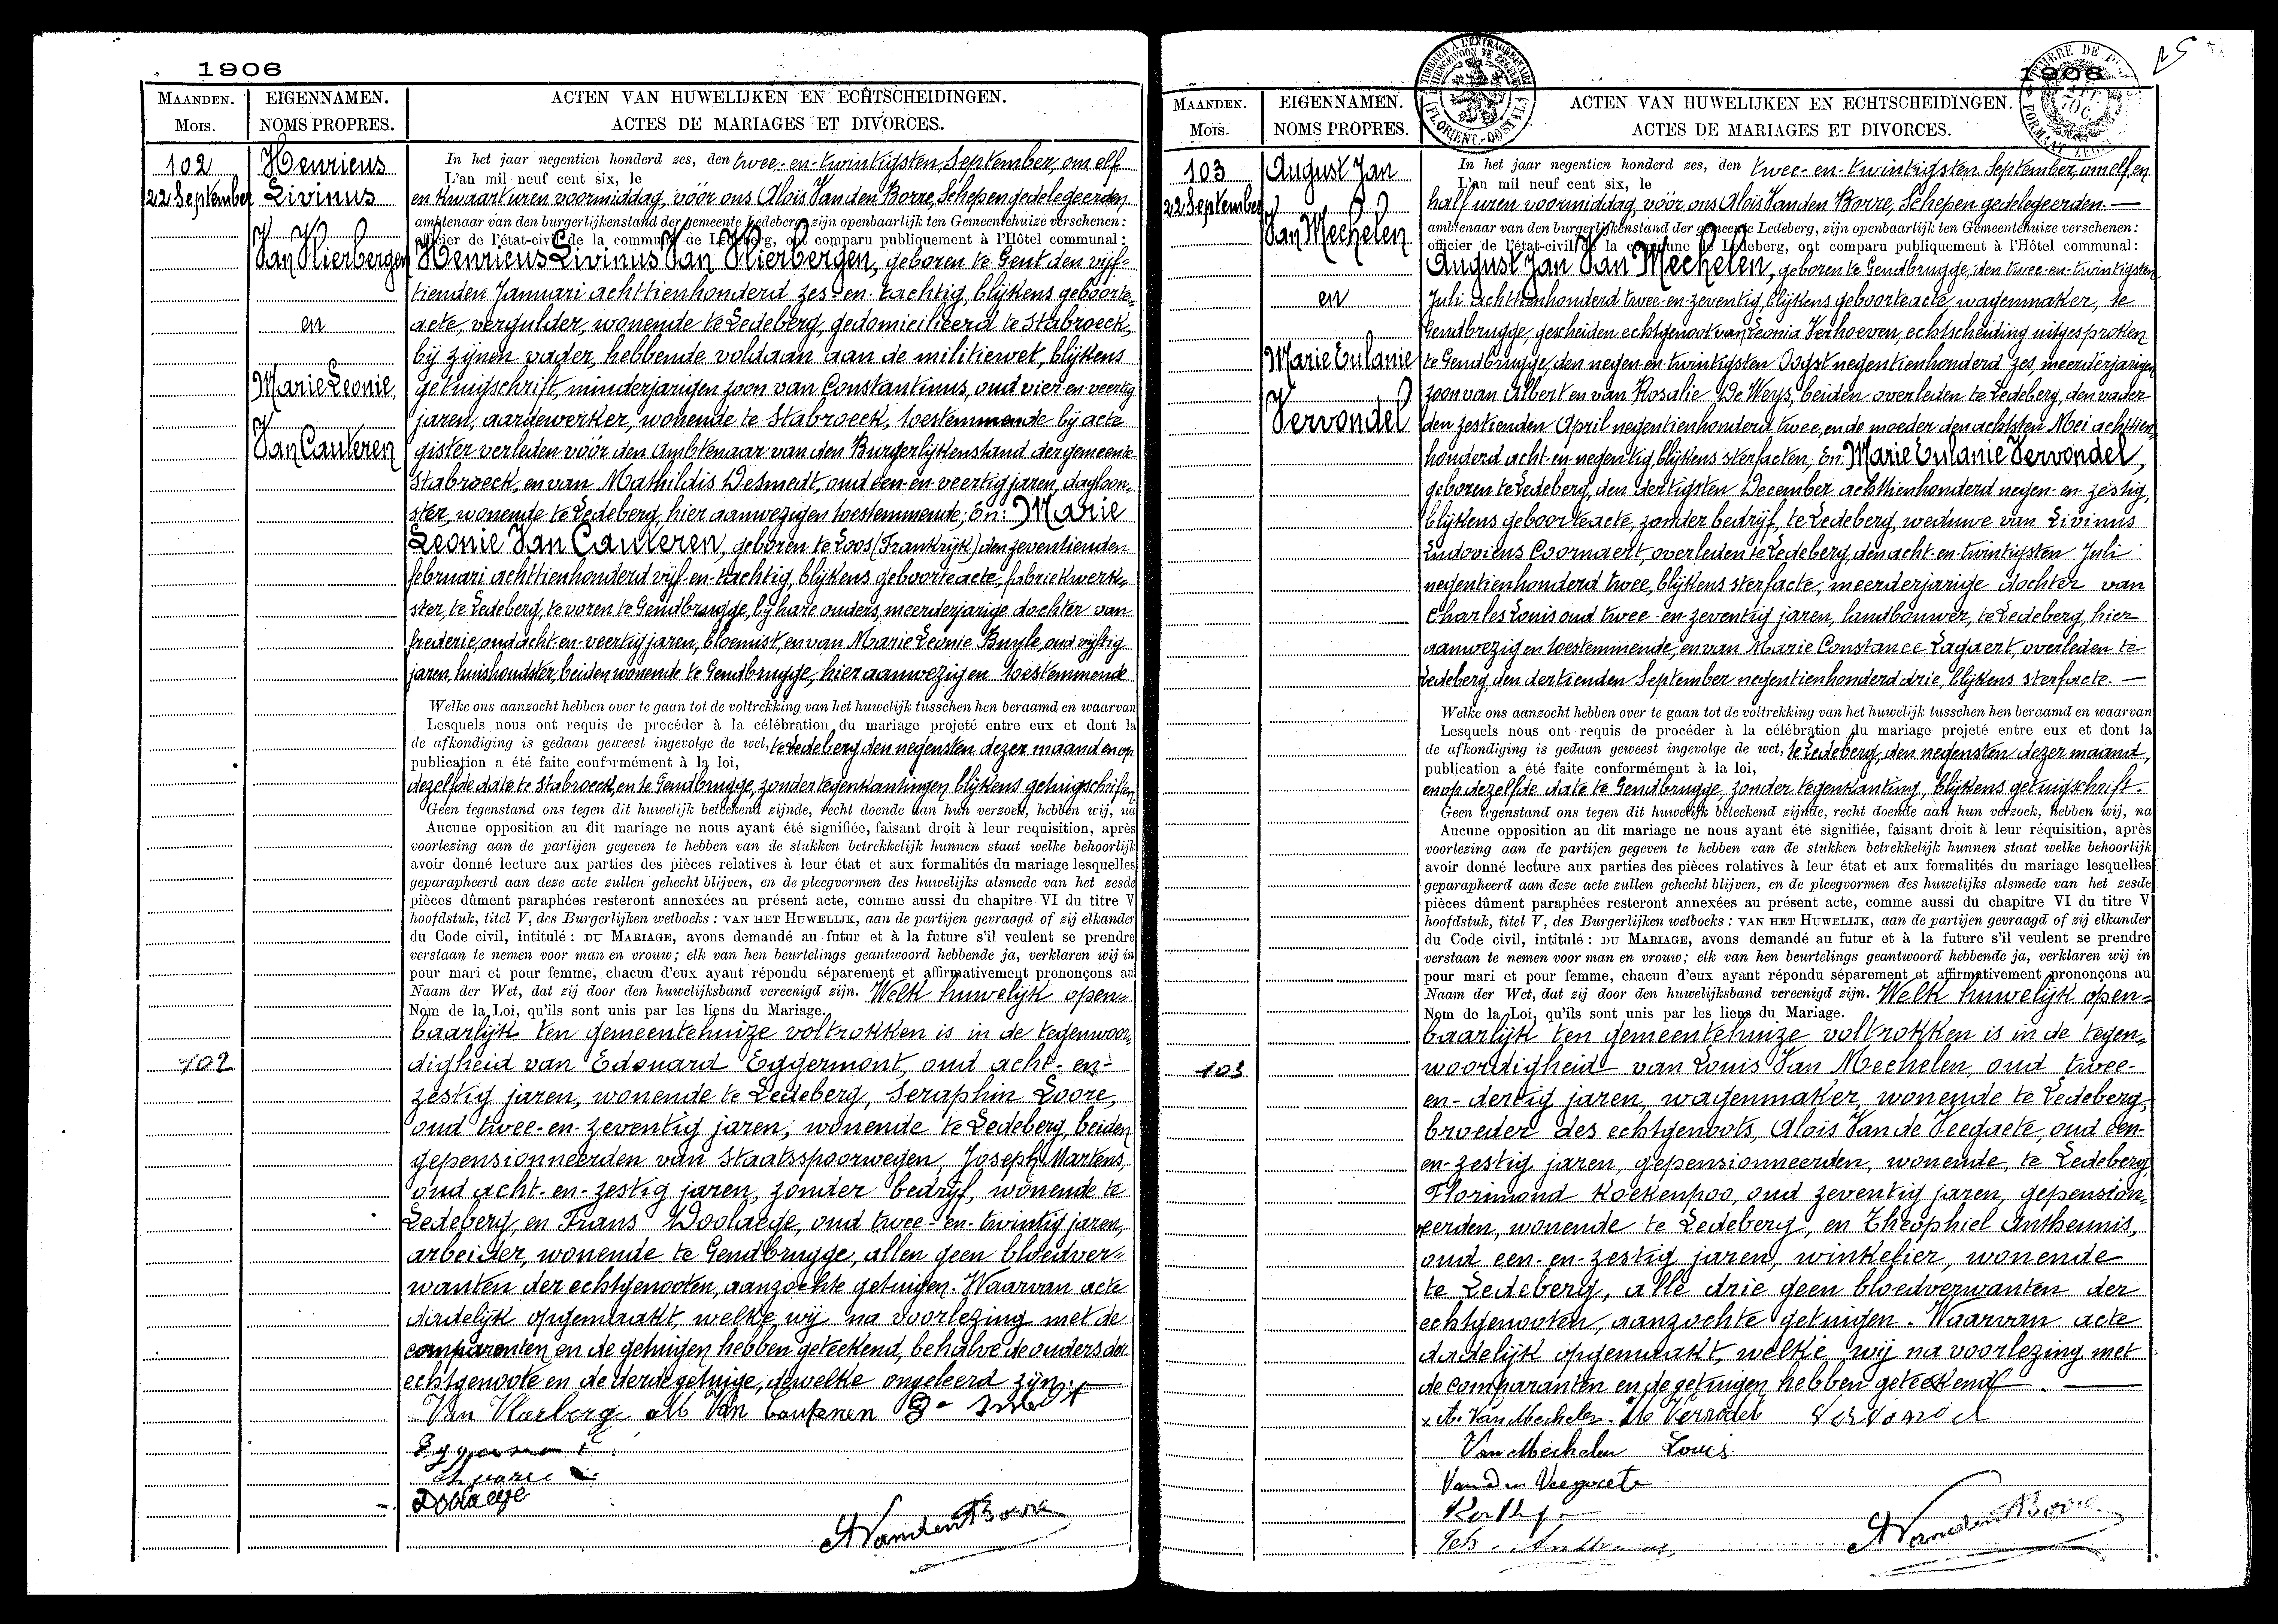 1906
MAANDEN. EIGENNAMEN. ACTEN VAN HUWELIJKEN EN ECHTSCHEIDINGEN.
MOIS. NOMS PROPRES. ACTES DE MARIAGES ET DIVORCES.
102
22 September
Henricus
Livinus
en
Marie Leonie
Van Cauteren
In het jaar negentien honderd zes, den twee-en-twintigsten September, om elf
L'an mil neuf cent six, le
en kwaart uren voormiddag, vóór ons Aloïs Van den Borre, Schepen gedelegeerden
ambtenaar van den burgerlijkenstand der gemeente Ledeberg, zijn openbaarlijk ten Gemeentehuize verschenen:
officier de l'état-civil de la commune de Ledeberg, ont comparu publiquement à l'Hôtel communal:
Henricus Livinus Van geboren te Gent den vijf-
tienden Januari achttienhonderd zes-en-tachtig, blijkens geboorte-
acte, vergulder, wonende te Ledeberg, gedomicilieerd te Stabroeck,
bij zijnen vader, hebbende voldaan aan de militiewet, blijkens
getuigschrift, minderjarigen zoon van Constantinus, oud vier-en-veertig
jaren, aardewerker, wonende te Stabroeck, toestemmende bij acte
gister verleden vóór den Ambtenaar van den Burgerlijkenstand der gemeente
Stabroeck, en van Mathildis Desmedt, oud een-en-veertig jaren, dagloon-
ster, wonende te Ledeberg, hier aanwezig en toestemmende; En: Marie
Leonie Van Cauteren, geboren te Loos (Frankrijk) den zeventienden
februari achttienhonderd vijf-en-tachtig, blijkens geboorteacte, fabriekwerk-
ster, te Ledeberg, te voren te Gendbrugge, bij hare ouders, meerderjarige dochter van
frederic, oud acht-en-veertig jaren, bloemist, en van Marie Leonie Buyle, oud vijftig
jaren, huishoudster, beiden wonende te Gendbrugge, hier aanwezig en toestemmende
Welke ons aanzocht hebben over te gaan tot de voltrekking van het huwelijk tusschen hen beraamd en waarvan
Lesquels nous ont requis de procéder à la célébration du mariage projeté entre eux et dont la
de afkondiging is gedaan geweest ingevolge de wet, te Ledeberg den negensten dezer maand en op
publication a été faite conformément à la loi,
dezelfde date te Stabroeck, en te Gendbrugge, zonder tegenkantingen blijkens getuigschriften
Geen tegenstand ons tegen dit huwelijk beteekend zijnde, recht doende aan hun verzoek, hebben wij, na
Aucune opposition au dit mariage ne nous ayant été signifiée, faisant droit à leur requisition, après
voorlezing aan de partijen gegeven te hebben van de stukken betrekkelijk hunnen staat welke behoorlijk
avoir donné lecture aux parties des pièces relatives à leur état et aux formalités du mariage lesquelles
geparapheerd aan deze acte zullen gehecht blijven, en de pleegvormen des huwelijks alsmede van het zesde
pièces dûment paraphées resteront annexées au présent acte, comme aussi du chapitre VI du titre V
hoofdstuk, titel V, des Burgerlijken wetboeks: VAN HET HUWELIJK, aan de partijen gevraagd of zij elkander
du Code civil, intitulé: DU MARIAGE, avons demandé au futur et à la future s'il veulent se prendre
verstaan te nemen voor man en vrouw; elk van hen beurtelings geantwoord hebbende ja, verklaren wij in
pour mari et pour femme, chacun d'eux ayant répondu séparement et affirmativement prononçons au
Naam der Wet, dat zij door den huwelijksband vereenigd zijn. Welk huwelijk open-
Nom de la Loi, qu'ils sont unis par les liens du Mariage.
baarlijk ten gemeentehuize voltrokken is in de tegenwoor-
102
digheid van Edouard Eggermont, oud acht-en-
zestig jaren, wonende te Ledeberg, Seraphin Loore,
oud twee-en-zeventig jaren, wonende te Ledeberg, beiden
gepensionneerden van Staatsspoorwegen, Joseph Martens,
oud acht-en-zestig jaren, zonder bedrijf, wonende te
Ledeberg, en Frans Doolaege, oud twee-en-twintig jaren,
arbeider, wonende te Gendbrugge, allen geen bloedver-
wanten der echtgenooten, aanzochte getuigen. Waarvan acte
dadelijk opgemaakt, welke wij na voorlezing met de
comparanten en de getuigen hebben geteekend, behalve de ouders der
echtgenoote en de derde getuige, dewelke ongeleerd zijn.
Eggermont
Doolaege
AVandenBorre
1906
MAANDEN. EIGENNAMEN. ACTEN VAN HUWELIJKEN EN ECHTSCHEIDINGEN.
MOIS. NOMS PROPRES. ACTES DE MARIAGES ET DIVORCES.
103
22 September
August Jan
Van Mechelen
en
Marie Eulanie
Vervondel
In het jaar negentien honderd zes, den twee-en-twintigsten September, om elf en
L'an mil neuf cent six, le
half uren voormiddag, vóór ons Aloïs Vanden Borre, Schepen gedelegeerden.
ambtenaar van den burgerlijkenstand der gemeente Ledeberg, zijn openbaarlijk ten Gemeentehuize verschenen:
officier de l'état-civil de la commune de Ledeberg, ont comparu publiquement à l'Hôtel communal:
August Jan Van Mechelen, geboren te Gendbrugge, den twee-en-twintigsten
Juli achttienhonderd twee-en-zeventig, blijkens geboorteacte, wagenmaker, te
Gendbrugge, gescheiden echtgenoot van Leonia Verhoeven, echtscheiding uitgesproken
te Gendbrugge, den negen-en-twintigsten Oogst negentienhonderd zes, meerderjarigen
zoon van Albert en van Rosalie De Weys, beiden overleden te Ledeberg, den vader
den zestienden April negentienhonderd twee, en de moeder den achtsten Mei achttien-
honderd acht-en-negentig, blijkens sterfacten; En: Marie Eulanie Vervondel,
geboren te Ledeberg, den dertigsten December achttienhonderd negen-en-zestig,
blijkens geboorteacte, zonder bedrijf, te Ledeberg, weduwe van Livinus
Ludovicus Coornaert, overleden te Ledeberg, den acht-en-twintigsten Juli
negentienhonderd twee, blijkens sterfacte, meerderjarige dochter van
Charles Louis oud twee-en-zeventig jaren, landbouwer, te Ledeberg, hier
aanwezig en toestemmende, en van Marie Constance Lagaert, overleden te
Ledeberg, den dertienden September negentienhonderd drie, blijkens sterfacte.
Welke ons aanzocht hebben over te gaan tot de voltrekking van het huwelijk tusschen hen beraamd en waarvan
Lesquels nous ont requis de procéder à la célébration du mariage projeté entre eux et dont la
de afkondiging is gedaan geweest ingevolge de wet, te Ledeberg, den negensten dezer maand,
publication a été faite conformément à la loi,
en op dezelfde date te Gendbrugge, zonder tegenkanting, blijkens getuigschrift.
Geen tegenstand ons tegen dit huwelijk beteekend zijnde, recht doende aan hun verzoek, hebben wij, na
Aucune opposition au dit mariage ne nous ayant été signifiée, faisant droit à leur réquisition, après
voorlezing aan de partijen gegeven te hebben van de stukken betrekkelijk hunnen staat welke behoorlijk
avoir donné lecture aux parties des pièces relatives à leur état et aux formalités du mariage lesquelles
geparapheerd aan deze acte zullen gehecht blijven, en de pleegvormen des huwelijks alsmede van het zesde
pièces dûment paraphées resteront annexées au présent acte, comme aussi du chapitre VI du titre V
hoofdstuk, titel V, des Burgerlijken wetboeks: VAN HET HUWELIJK, aan de partijen gevraagd of zij elkander
du Code civil, intitulé: DU MARIAGE, avons demandé au futur et à la future s'il veulent se prendre
verstaan te nemen voor man en vrouw; elk van hen beurtelings geantwoord hebbende ja, verklaren wij in
pour mari et pour femme, chacun d'eux ayant répondu séparement et affirmativement prononçons au
Naam der Wet, dat zij door den huwelijksband vereenigd zijn. Welk huwelijk open-
Nom de la Loi, qu'ils sont unis par les liens du Mariage.
baarlijk ten gemeentehuize voltrokken is in de tegen-
103
woordigheid van Louis Van Mechelen, oud twee-
en-dertig jaren, wagenmaker, wonende te Ledeberg,
broeder des echtgenoots, Aloïs Van de Veegaete, oud een-
en-zestig jaren, gepensionneerden, wonende, te Ledeberg,
Florimond Koekenpoo, oud zeventig jaren, gepension-
eerden, wonende te Ledeberg, en Theophiel Antheunis,
oud een-en-zestig jaren, winkelier, wonende
te Ledeberg, alle drie geen bloedverwanten der
echtgenooten, aanzochte getuigen. Waarvan acte
dadelijk opgemaakt, welke wij na voorlezing met
de comparanten en de getuigen hebben geteekend.
A. Van Mechelen
Van Mechelen Louis
AVandenBorre